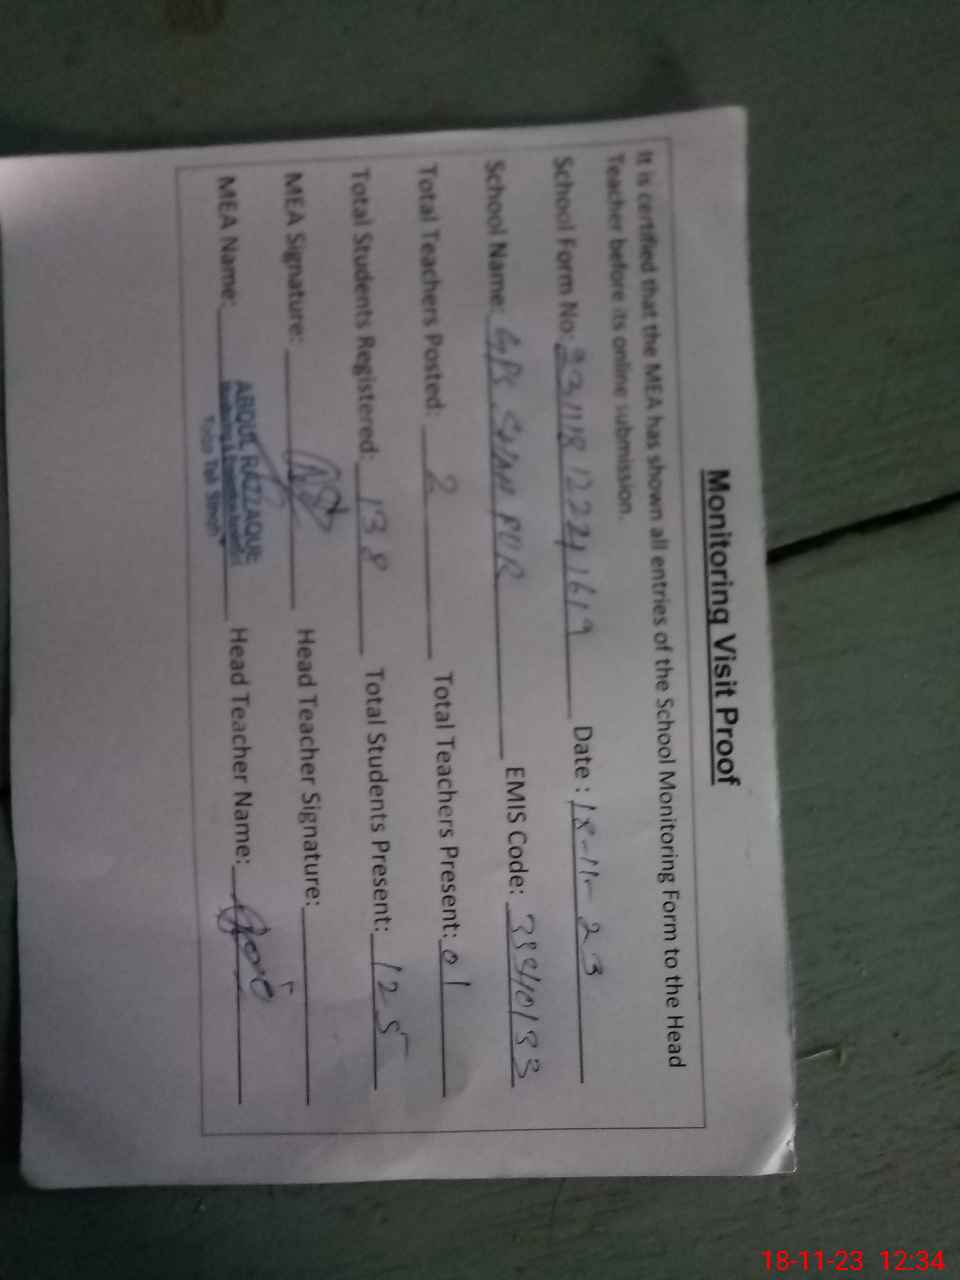 Monitoring Visit Proof
It is certified that the MEA has shown all entries of the School Monitoring Form to the Head
Teacher before its online submission.
School Form No: Date : 18-11-23
School Name: GPS PUR EMIS Code:
Total Teachers Posted: 2 Total Teachers Present: 01
Total Students Registered: 138 Total Students Present: 125
MEA Signature: Head Teacher Signature:
MEA Name: ABDUL RAZZAQUE Head Teacher Name:
18-11-23 12:34